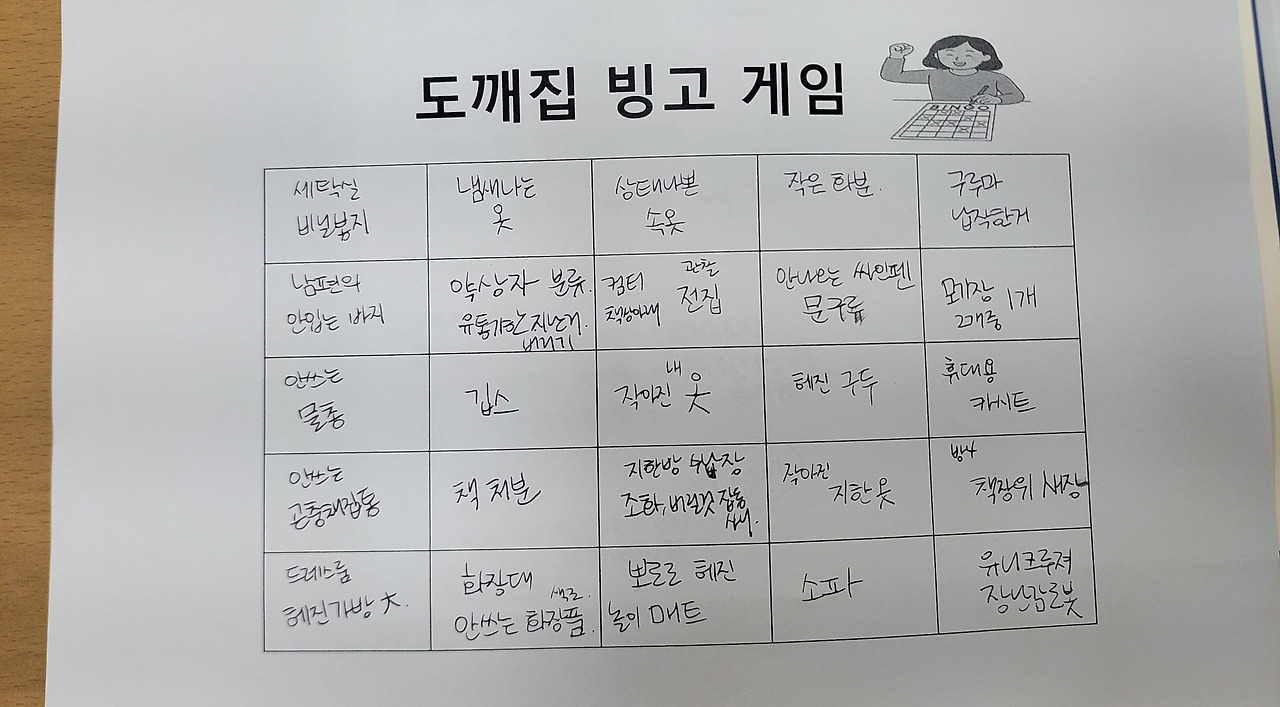 도깨집 빙고 게임
BINGO
세탁실
비닐봉지
냄새나는
옷
상태나쁜
속옷
작은 화분.
구루마
납작한거
남편의
안입는 바지
약상자 분류.
유통기한 지난거.
버리기
컴터
책상아래
관찰
전집
안나오는 싸인펜
문구류
모기장
2개중 1개
안쓰는
물통
깁스
내
작아진 옷
헤진 구두
휴대용
카시트
안쓰는
곤충채집통
책 처분
지한방 수납장
조화, 버릴것
작아진
지한 옷
책장위 새장
드레스룸
헤진가방 大.
화장대
안쓰는 색조. 화장품.
뽀로로 헤진
놀이 매트
소파
유니크루져
장난감로봇